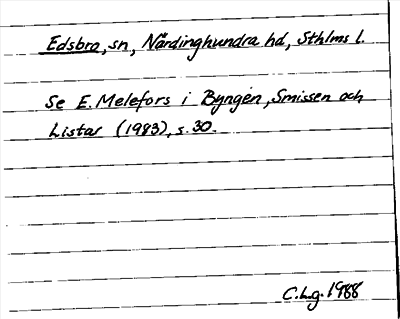 Edsbro, sn, Närdinghundra hd, Sthlms l.
Se E. Melefors i Byngen, Smissen och
Listar (1983), s. 30.
C.L.g. 1988